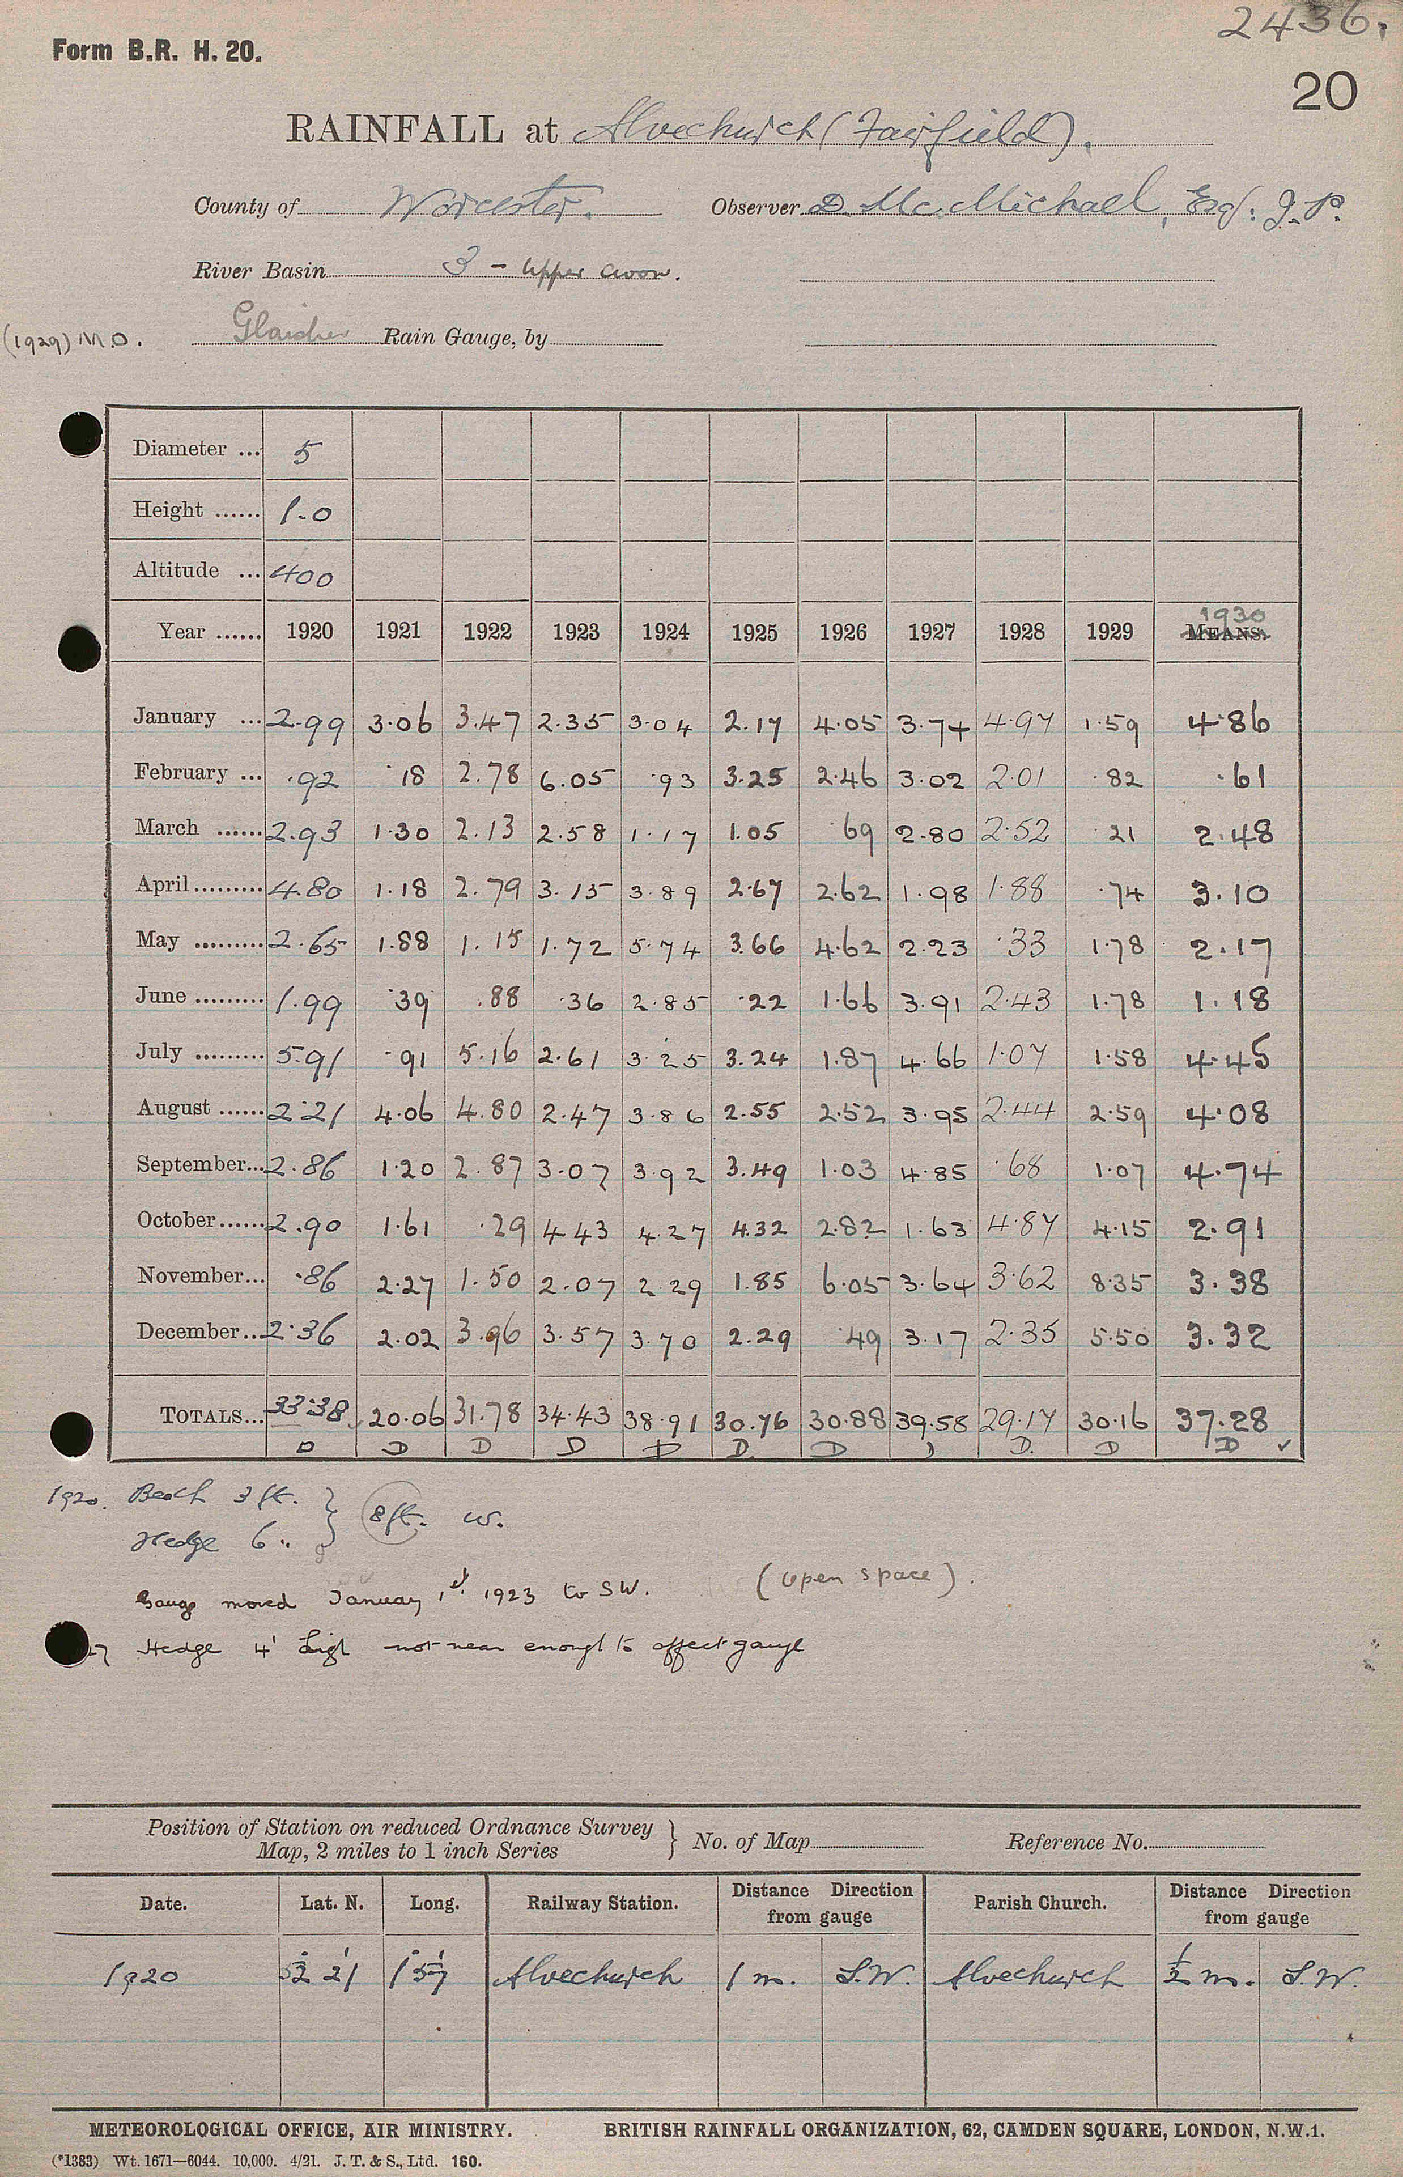 2436.
Form B.R. H. 20.
20
RAINFALL at Alvechurch (Fairfield).
County of Worcester. Observer D. Mc. Michael, Esq: J.P.
River Basin 3 - Upper Avon.
(1929) M.O. Glaisher Rain Gauge, by
Diameter ... 5
Height ...... 1.0
Altitude ... 400
1930
Year ...... 1920 1921 1922 1923 1924 1925 1926 1927 1928 1929 MEANS.
January ... 2.99 3.06 3.47 2.35 3.04 2.17 4.05 3.74 4.97 1.59 4.86
February ... .92 .18 2.78 6.05 .93 3.25 2.46 3.02 2.01 .82 .61
March ...... 2.93 1.30 2.13 2.58 1.17 1.05 .69 2.80 2.52 .21 2.48
April ......... 4.80 1.18 2.79 3.15 3.89 2.67 2.62 1.98 1.88 .74 3.10
May ......... 2.65 1.88 1.15 1.72 5.74 3.66 4.62 2.23 .33 1.78 2.17
June ......... 1.99 .39 .88 .36 2.85 .22 1.66 3.91 2.43 1.78 1.18
July ......... 5.91 .91 5.16 2.61 3.25 3.24 1.87 4.66 1.07 1.58 4.45
August ...... 2.21 4.06 4.80 2.47 3.86 2.55 2.52 3.95 2.44 2.59 4.08
September... 2.86 1.20 2.87 3.07 3.92 3.49 1.03 4.85 .68 1.07 4.74
October...... 2.90 1.61 .29 4.43 4.27 4.32 2.82 1.63 4.87 4.15 2.91
November... .86 2.27 1.50 2.07 2.29 1.85 6.05 3.64 3.62 8.35 3.38
December... 2.36 2.02 3.96 3.57 3.70 2.29 .49 3.17 2.35 5.50 3.32
TOTALS... 33.38 20.06 31.78 34.43 38.91 30.76 30.88 39.58 29.17 30.16 37.28
D D D D D D D D D D D ✓
1920. Beech 3 ft. } 8ft. W.
Hedge 6 "
Gauge moved January 1st. 1923 to SW. (open space).
27 Hedge 4' high not near enough to affect gauge
Position of Station on reduced Ordnance Survey Map, 2 miles to 1 inch Series } No. of Map Reference No.
Date. Lat. N. Long. Railway Station. Distance Direction from gauge Parish Church. Distance Direction from gauge
1920 52° 21' 1° 57' Alvechurch 1 m. S.W. Alvechurch ½ m. S.W.
METEOROLOGICAL OFFICE, AIR MINISTRY. BRITISH RAINFALL ORGANIZATION, 62, CAMDEN SQUARE, LONDON, N.W.1.
(*1383) Wt. 1671—6044. 10,000. 4/21. J. T. & S., Ltd. 160.